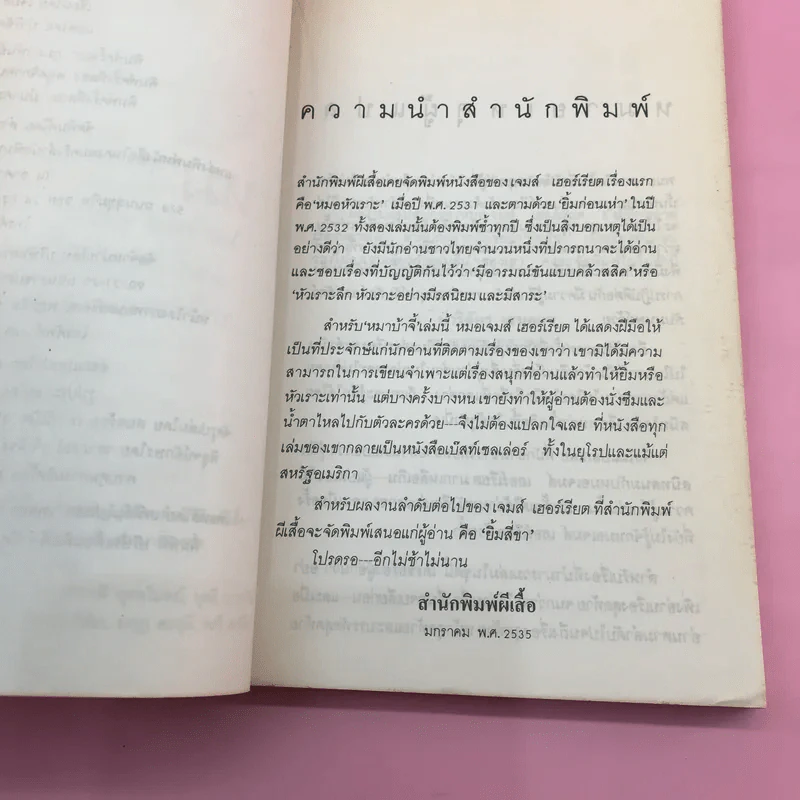 ความนำสำนักพิมพ์
สำนักพิมพ์ผีเสื้อเคยจัดพิมพ์หนังสือของ เจมส์ เฮอร์เรียต เรื่องแรก
คือ‘หมอหัวเราะ’ เมื่อปี พ.ศ. 2531 และตามด้วย ‘ยิ้มก่อนเห่า’ ในปี
พ.ศ. 2532 ทั้งสองเล่มนั้นต้องพิมพ์ซ้ำทุกปี ซึ่งเป็นสิ่งบอกเหตุได้เป็น
อย่างดีว่า ยังมีนักอ่านชาวไทยจำนวนหนึ่งที่ปรารถนาจะได้อ่าน
และชอบเรื่องที่บัญญัติกันไว้ว่า ‘มีอารมณ์ขันแบบคล้าสสิค’ หรือ
‘หัวเราะลึก หัวเราะอย่างมีรสนิยม และมีสาระ’
สำหรับ‘หมาบ้าจี้’เล่มนี้ หมอเจมส์ เฮอร์เรียต ได้แสดงฝีมือให้
เป็นที่ประจักษ์แก่นักอ่านที่ติดตามเรื่องของเขาว่า เขามิได้มีความ
สามารถในการเขียนจำเพาะแต่เรื่องสนุกที่อ่านแล้วทำให้ยิ้มหรือ
หัวเราะเท่านั้น แต่บางครั้งบางหน เขายังทำให้ผู้อ่านต้องนั่งซึมและ
น้ำตาไหลไปกับตัวละครด้วย---จึงไม่ต้องแปลกใจเลย ที่หนังสือทุก
เล่มของเขากลายเป็นหนังสือเบ๊สท์เซลเล่อร์ ทั้งในยุโรปและแม้แต่
สหรัฐอเมริกา
สำหรับผลงานลำดับต่อไปของ เจมส์ เฮอร์เรียต ที่สำนักพิมพ์
ผีเสื้อจะจัดพิมพ์เสนอแก่ผู้อ่าน คือ ‘ยิ้มสี่ขา’
โปรดรอ---อีกไม่ช้าไม่นาน
สำนักพิมพ์ผีเสื้อ
มกราคม พ.ศ. 2535